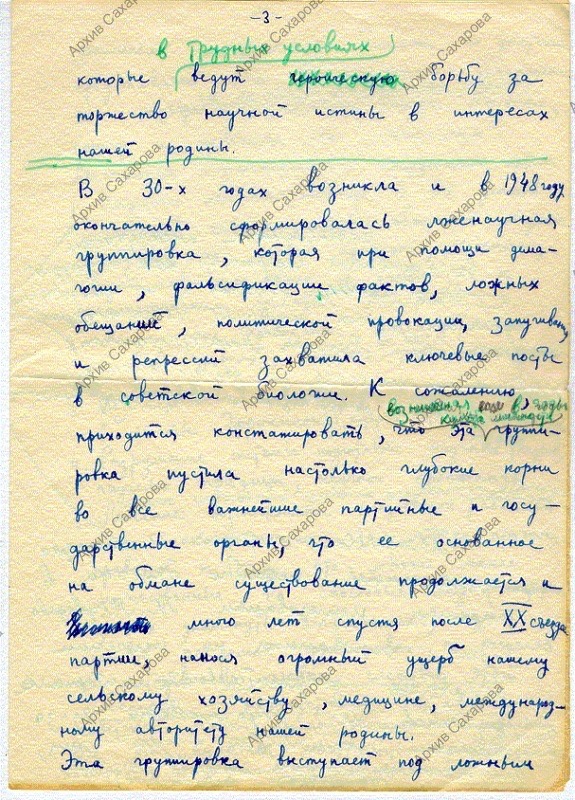 -3-
в трудных условиях
которые ведут героическую борьбу за
торжество научной истины в интересах
нашей родины.
В 30-х годах возникла и в 1948 году
окончательно сформировалась лженаучная
группировка, которая при помощи дема-
гогии, фальсификации фактов, ложных
обещаний, политической провокации, запугивания
и репрессий захватила ключевые посты
в советской биологии. К сожалению,
возникшая в годы
культа
приходится констатировать, что эта группи-
ровка пустила настолько глубокие корни
во все важнейшие партийные и госу-
дарственные органы, что ее основанное
на обмане существование продолжается и
много лет спустя после XX съезда
партии, нанося огромный ущерб нашему
сельскому хозяйству, медицине, международ-
ному авторитету нашей родины.
Эта группировка выступает под ложным
Архив Сахарова